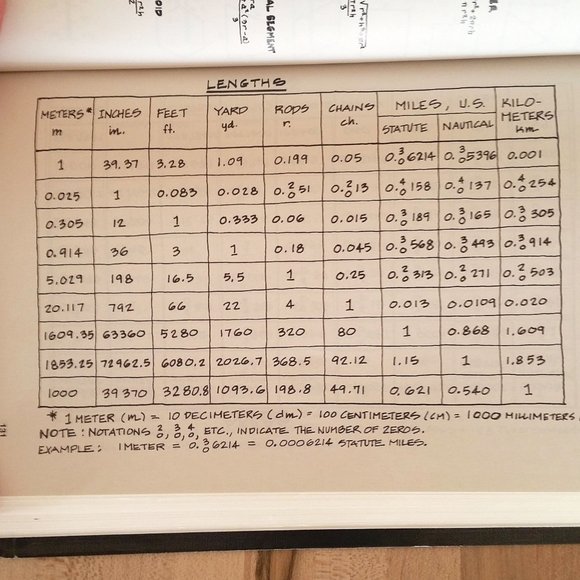 LENGTHS
METERS* m INCHES in. FEET ft. YARD yd. RODS r. CHAINS ch. MILES, U.S. STATUTE NAUTICAL KILO-METERS km
1 39.37 3.28 1.09 0.199 0.05 0.0³6214 0.0³5396 0.001
0.025 1 0.083 0.028 0.0²51 0.0²13 0.0⁴158 0.0⁴137 0.0⁴254
0.305 12 1 0.333 0.06 0.015 0.0³189 0.0³165 0.0³305
0.914 36 3 1 0.18 0.045 0.0³568 0.0³493 0.0³914
5.029 198 16.5 5.5 1 0.25 0.0²313 0.0²271 0.0²503
20.117 792 66 22 4 1 0.013 0.0109 0.020
1609.35 63360 5280 1760 320 80 1 0.868 1.609
1853.25 72962.5 6080.2 2026.7 368.5 92.12 1.15 1 1.853
1000 39370 3280.8 1093.6 198.8 49.71 0.621 0.540 1
* 1 METER (m) = 10 DECIMETERS (dm) = 100 CENTIMETERS (CM) = 1000 MILLIMETERS
NOTE: NOTATIONS 0², 0³, 0⁴, ETC., INDICATE THE NUMBER OF ZEROS.
EXAMPLE: 1 METER = 0.0³6214 = 0.0006214 STATUTE MILES.
131